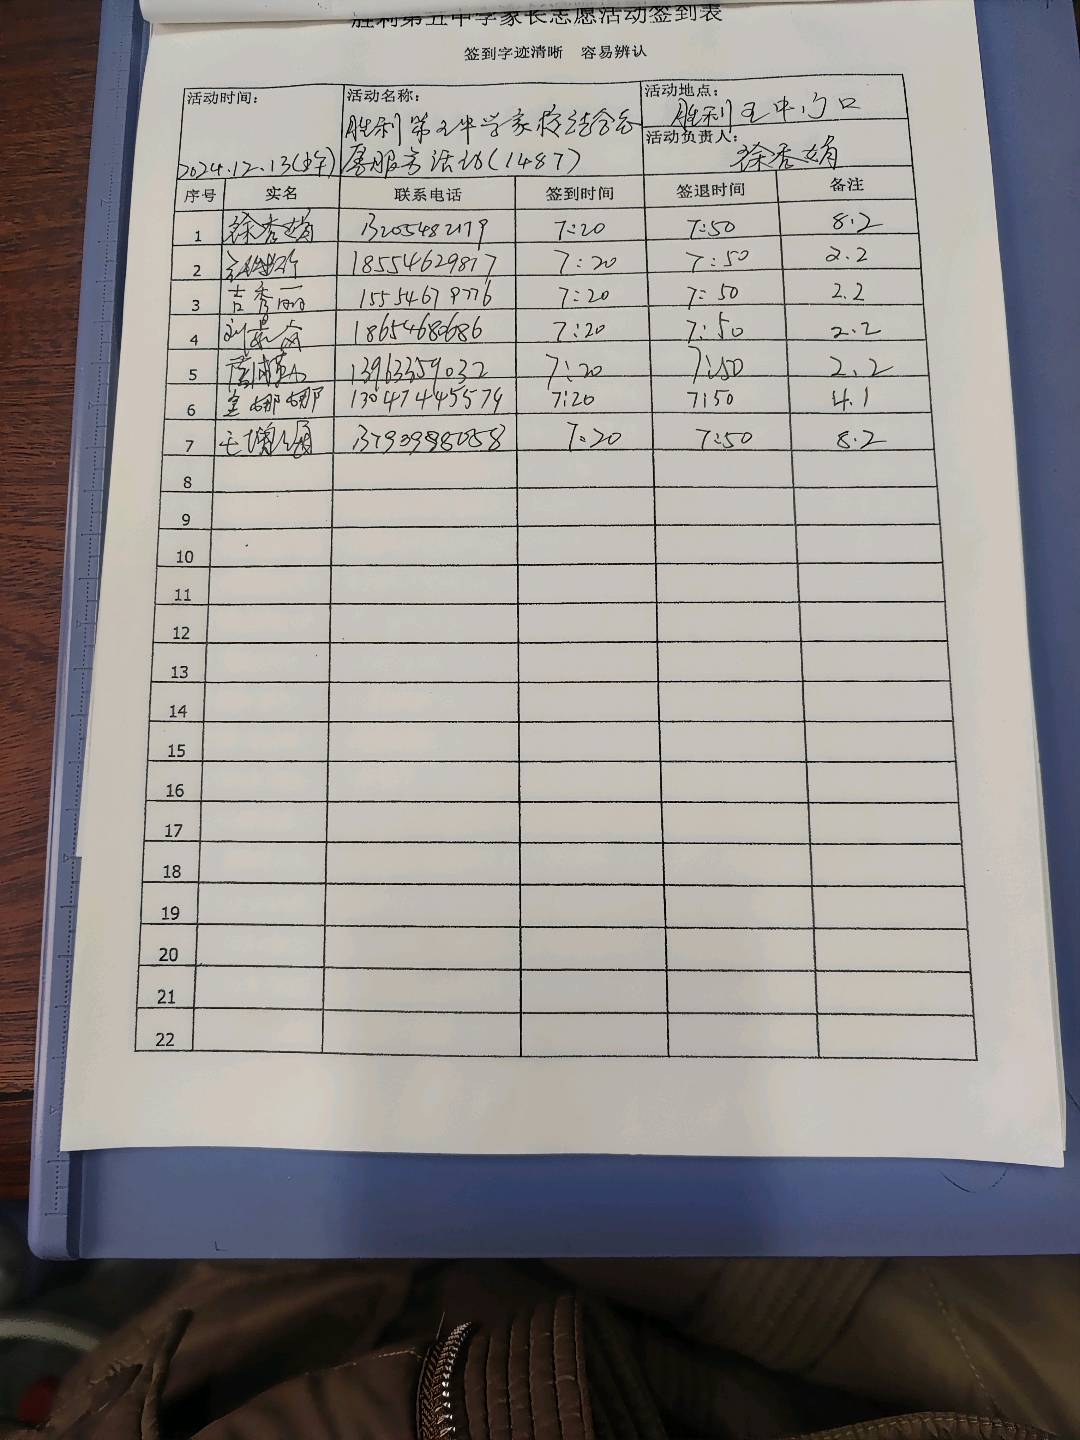 胜利第五中学家长志愿活动签到表
签到字迹清晰 容易辨认
活动时间： 活动名称： 活动地点：
胜利五中门口
胜利第五中学家校结合志 活动负责人：
2024.12.13(上午) 愿服务活动(1487) 徐秀娟
序号 实名 联系电话 签到时间 签退时间 备注
1 徐秀娟 13205482179 7:20 7:50 8.2
2 18554629817 7:20 7:50 2.2
3 吉秀丽 15554679776 7:20 7:50 2.2
4 18654680686 7:20 7:50 2.2
5 13963359032 7:20 7:50 2.2
6 娜娜 13047445579 7:20 7:50 4.1
7 7:20 7:50 8.2
8
9
10
11
12
13
14
15
16
17
18
19
20
21
22